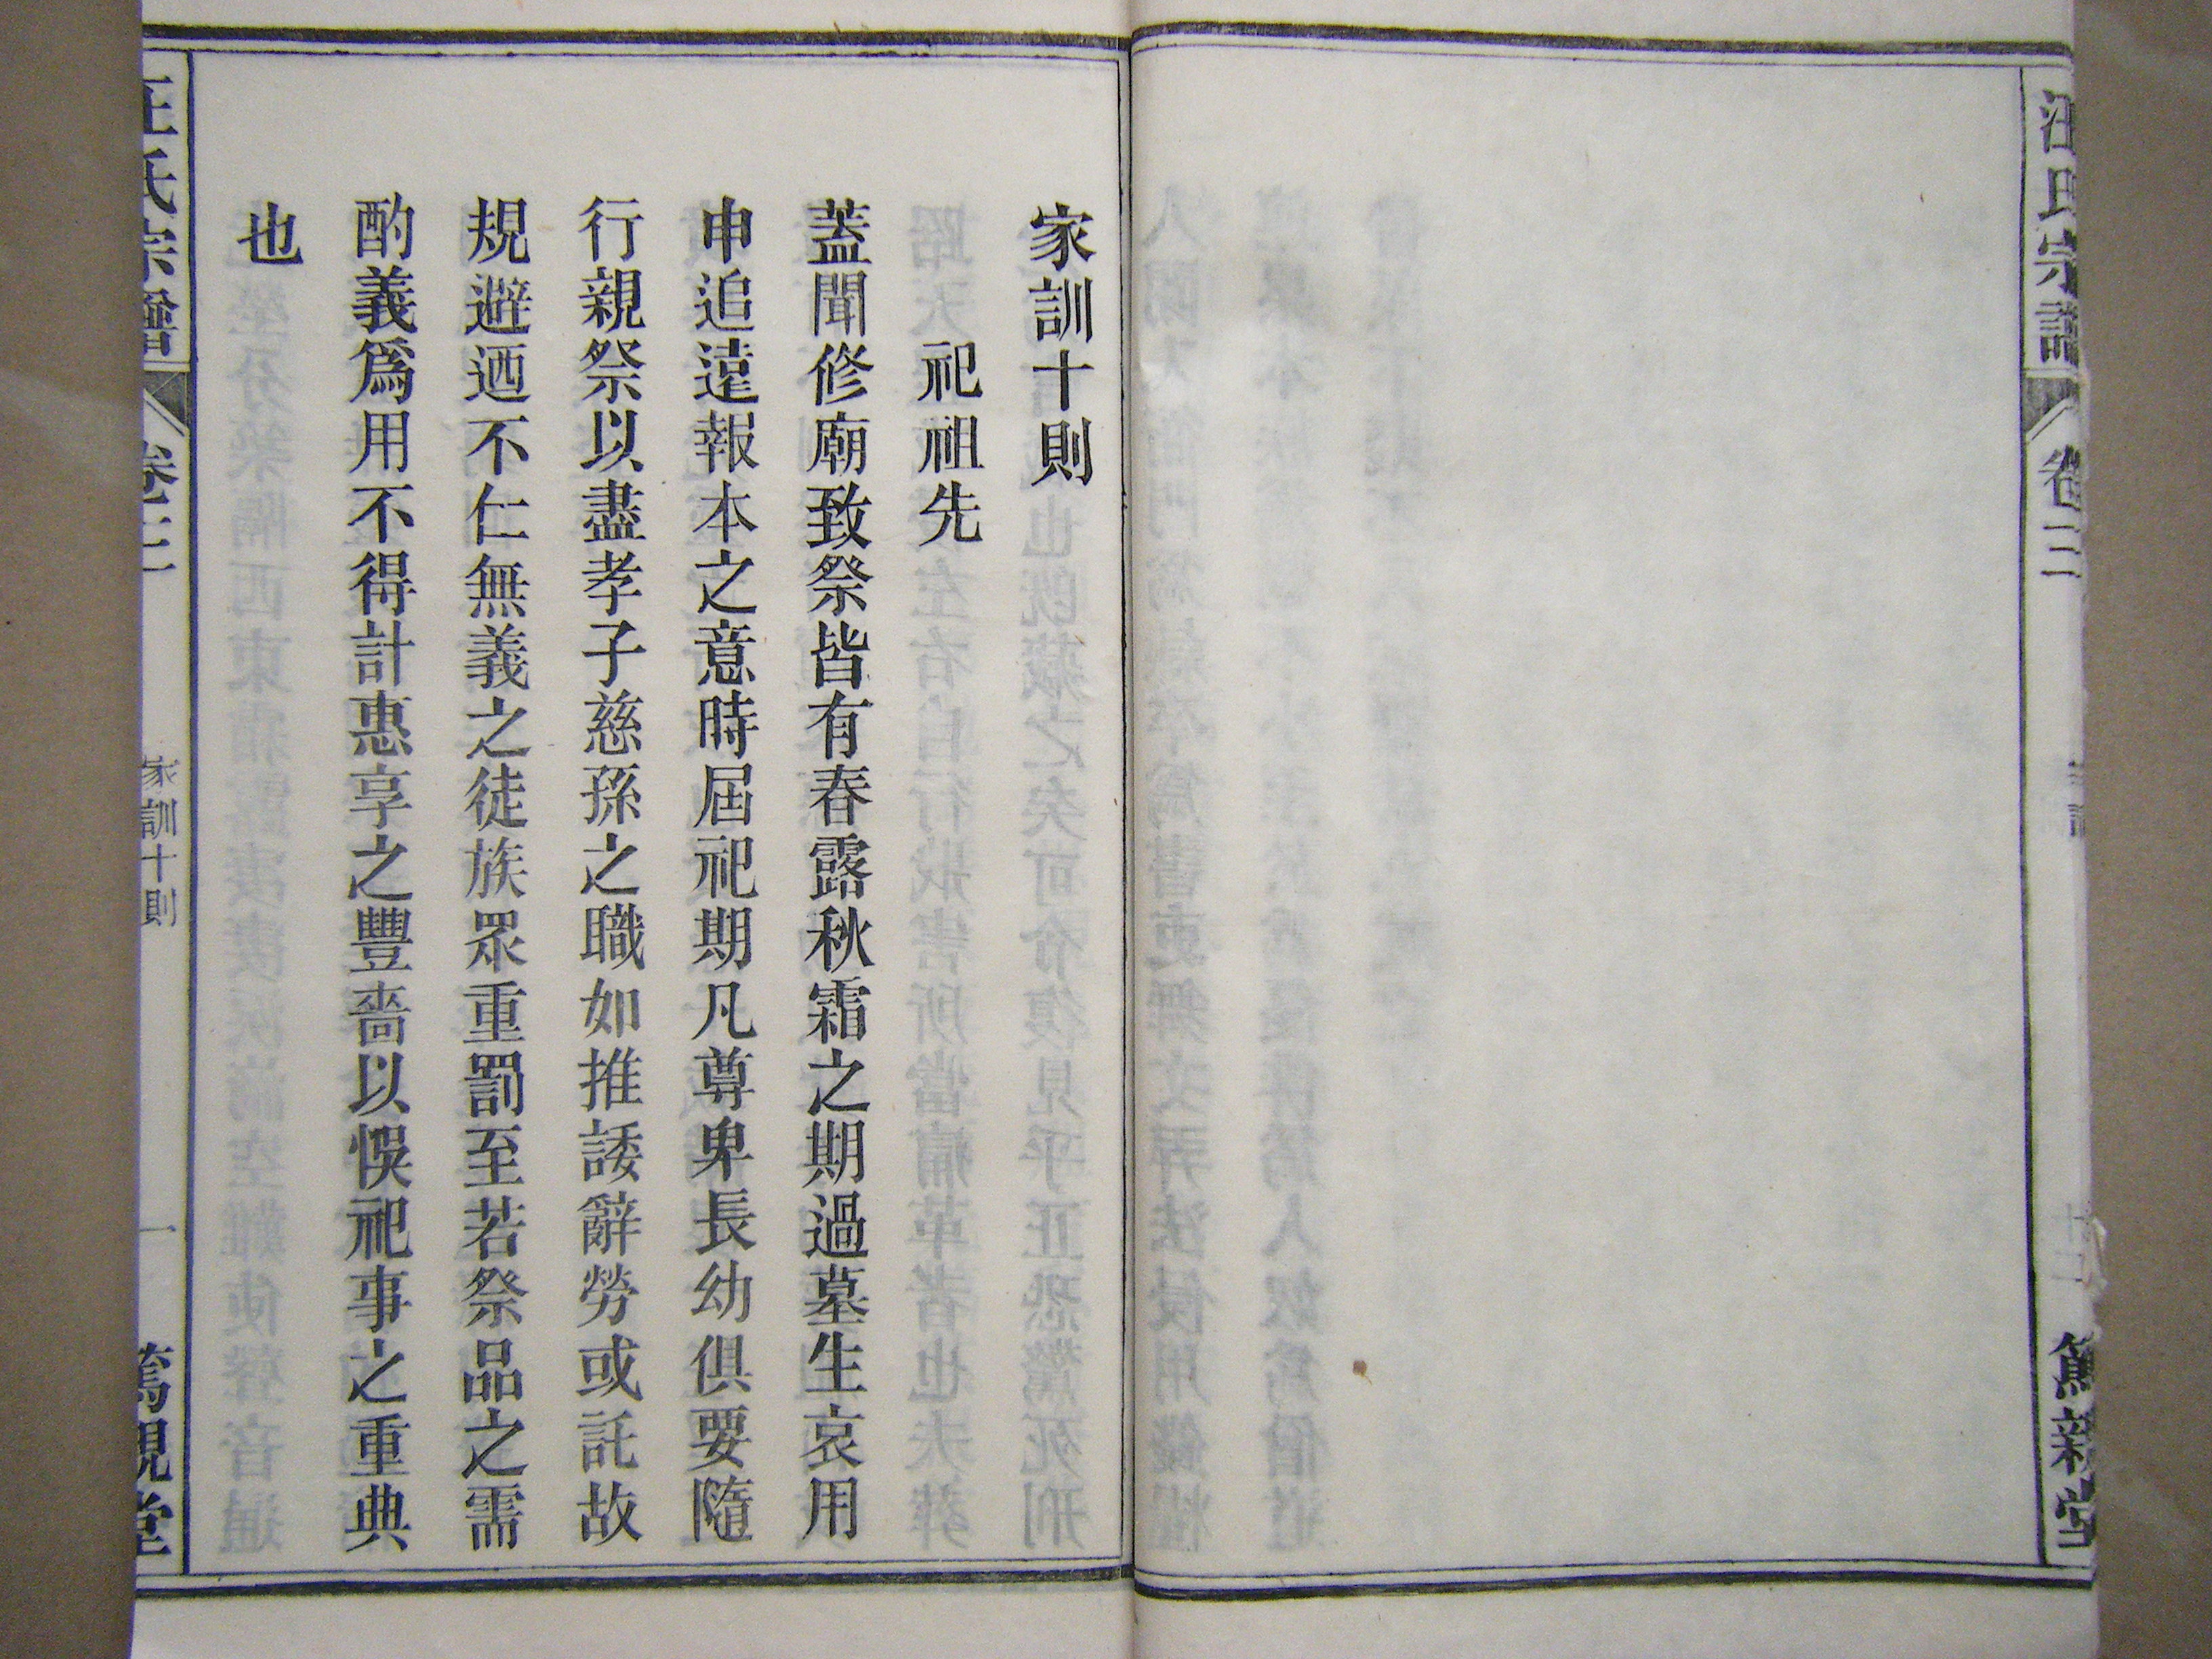 汪氏宗譜
卷三
篤親堂
家訓十則
祀祖先
蓋聞修廟致祭皆有春露秋霜之期過墓生哀用
申追遠報本之意時屆祀期凡尊卑長幼俱要隨
行親祭以盡孝子慈孫之職如推諉辭勞或託故
規避迺不仁無義之徒族眾重罰至若祭品之需
酌義爲用不得計惠享之豐嗇以悞祀事之重典
也
汪氏宗譜
卷三
家訓十則
一
篤親堂